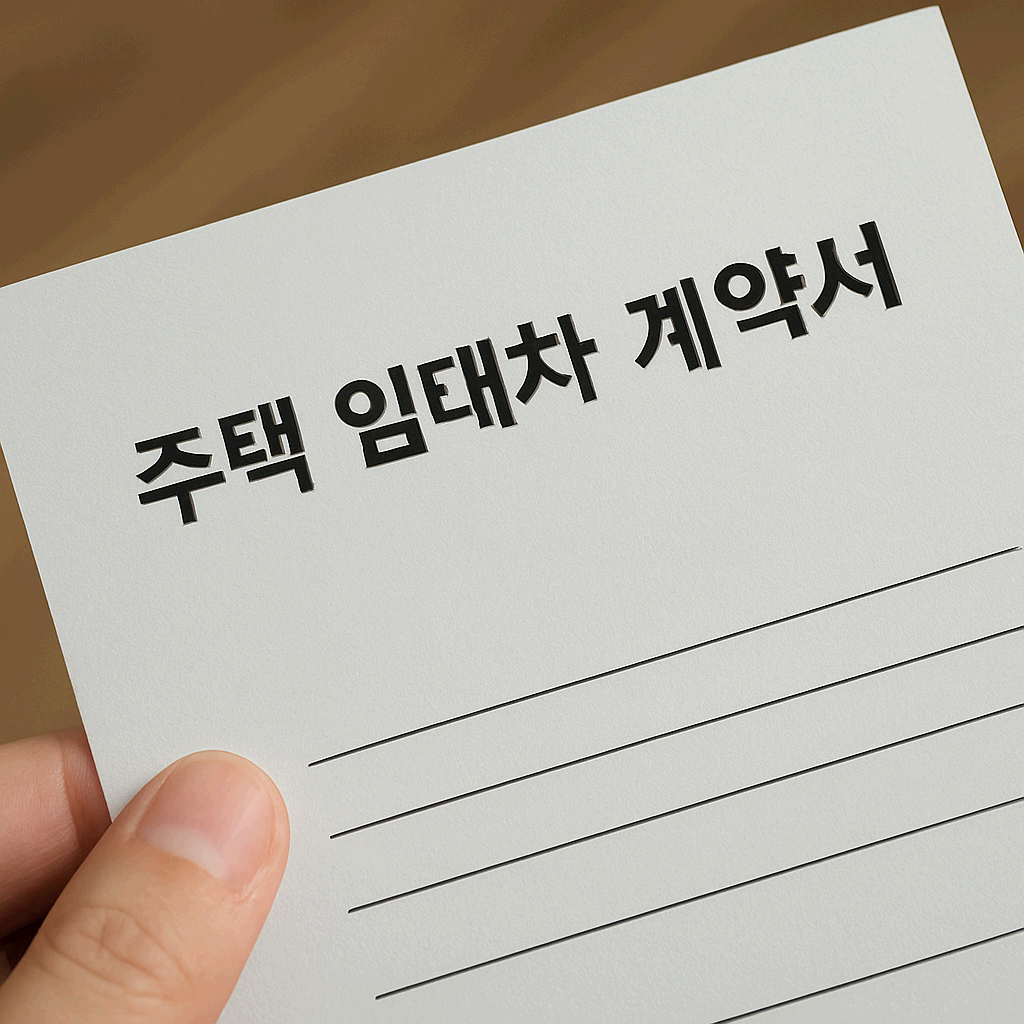 주택 임태차 계약서